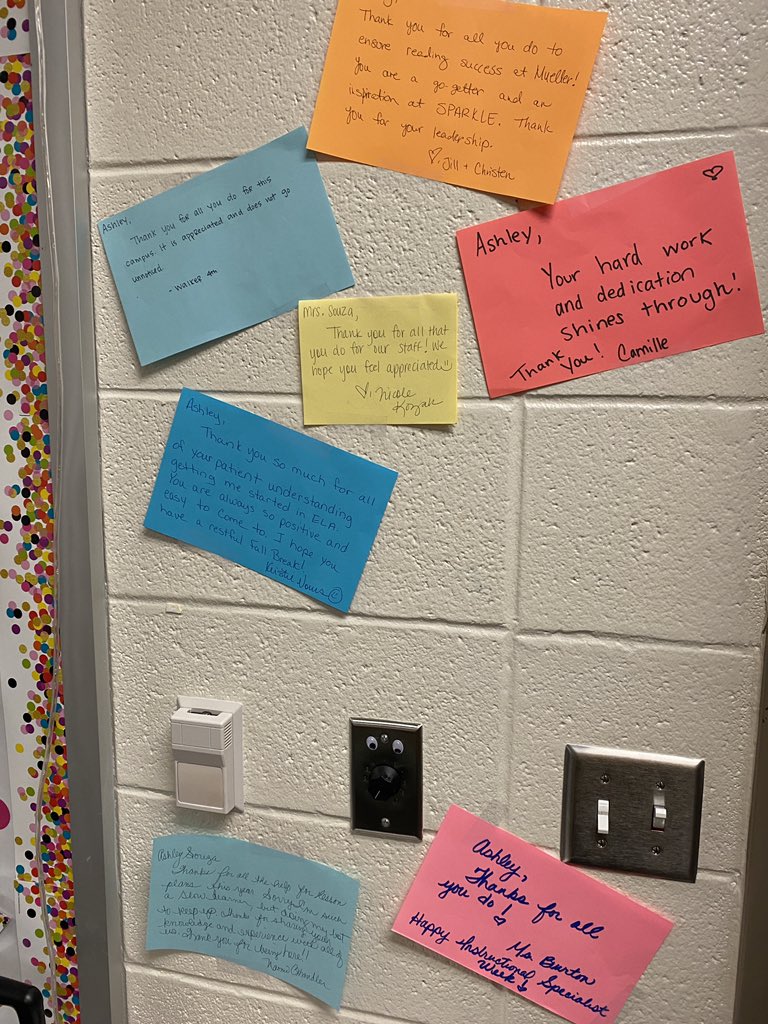 Thank you for all you do to
ensure reading success at Mueller!
You are a go-getter and an
inspiration at SPARKLE. Thank
you for your leadership.
♡, Jill + Christen
Ashley,
Thank you for all you do for this
campus. It is appreciated and does not go
unnoticed.
- Walker 4th
Ashley,
Your hard work
and dedication
shines through!
Thank you! Camille
Mrs. Souza,
Thank you for all that
you do for our staff! We
hope you feel appreciated
♡, Nicole
Ashley,
Thank you so much for all
of your patient understanding
getting me started in ELA.
You are always so positive and
easy to come to. I hope you
have a restful Fall Break!
Ashley Souza
Thanks for all the help you lesson
plans this year. Sorry I'm such
a slow learner, but doing my best
to keep up. Thanks for sharing your
knowledge and experience with all of
us. Thank you for being here!!
Chandler
Ashley,
Thanks for all
you do!
Ms. Burton
Happy Instructional Specialist
Week